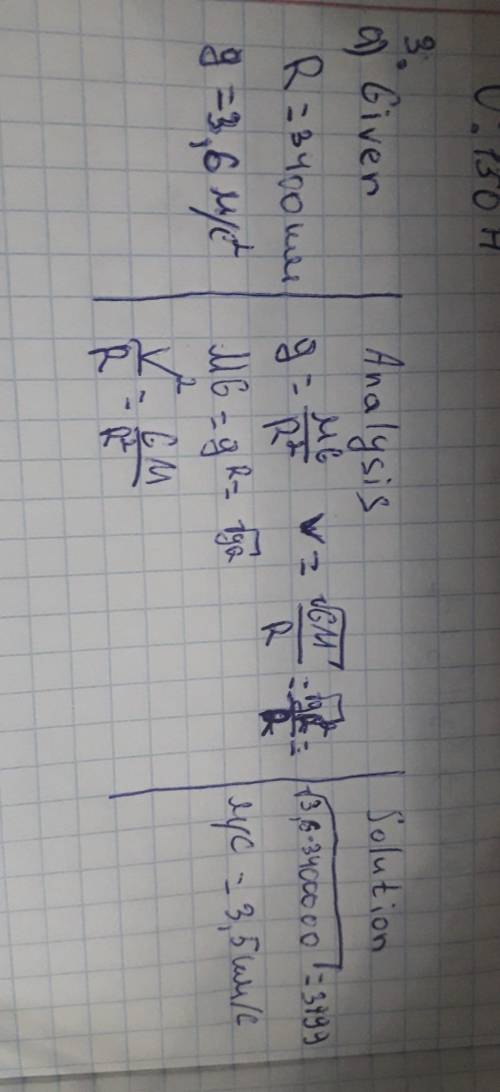 3.
a) Given
R = 3400 км
g = 3,6 м/с²
Analysis
g = MG/R² V = √GM/R = √gR²/R =
MG = gR = √gR
V²/R = GM/R²
Solution
√3,6·3400000 = 3499
м/с = 3,5 км/с